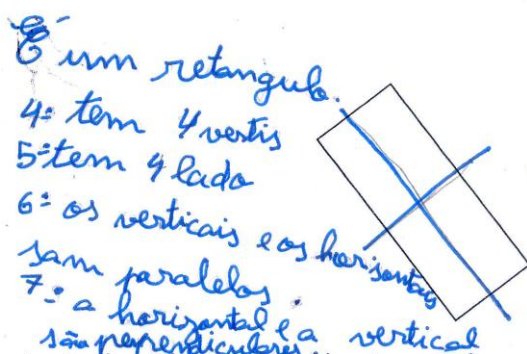 É um retangulo.
4º tem 4 vertis
5º tem 4 lado
6º os verticais e os horizontais
sam paralelos
7º a horizontal e a vertical
são perpendiculares